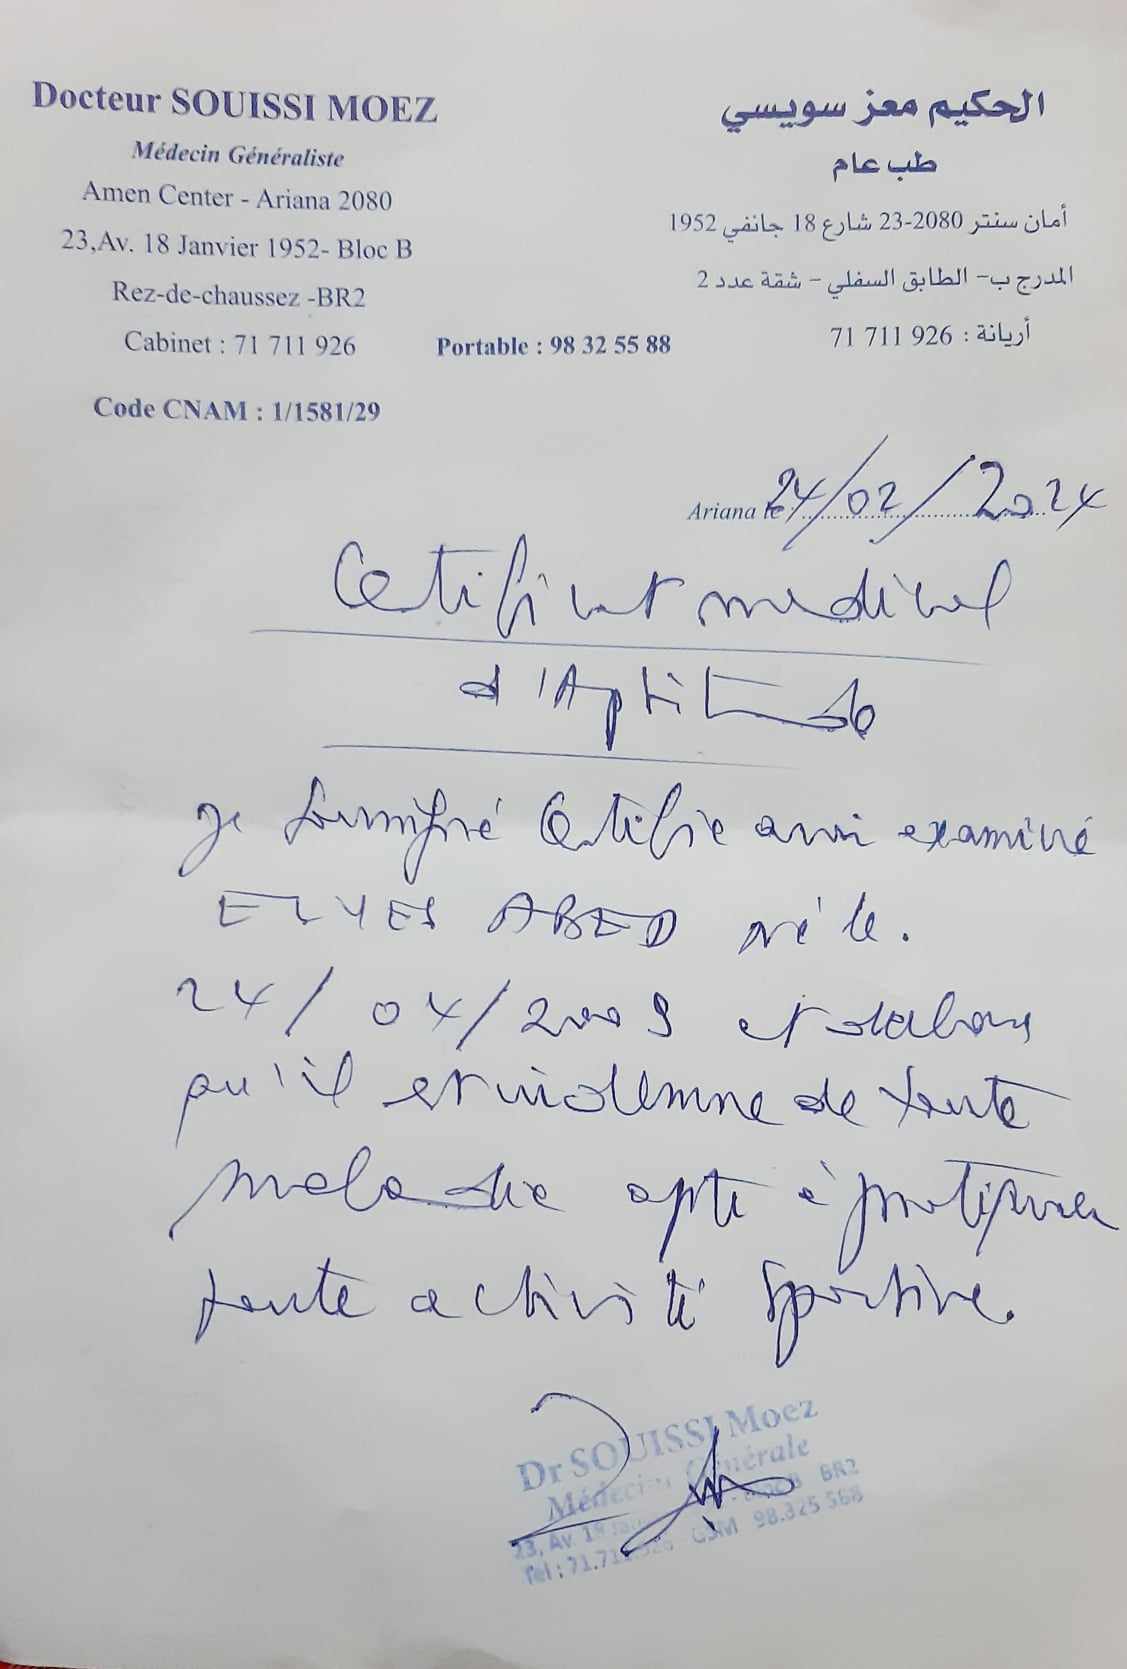 Docteur SOUISSI MOEZ
Médecin Généraliste
Amen Center - Ariana 2080
23,Av. 18 Janvier 1952- Bloc B
Rez-de-chaussez -BR2
Cabinet : 71 711 926
Portable : 98 32 55 88
Code CNAM : 1/1581/29
الحكيم معز سويسي
طب عام
أمان سنتر 2080-23 شارع 18 جانفي 1952
المدرج ب- الطابق السفلي - شقة عدد 2
أريانة : 926 711 71
Ariana le 24/02/2024
Certificat medical
d'Aptitude
Je soussigné Certifie avoir examiné
ELYES ABED né le.
24/04/2009 et
qu'il est indemne de toute
maladie apte à pratiquer
toute activité sportive.
Dr SOUISSI Moez
Médecine Générale
23, Av. 18 BR2
Tel : 71.711.926 GSM 98.325 588